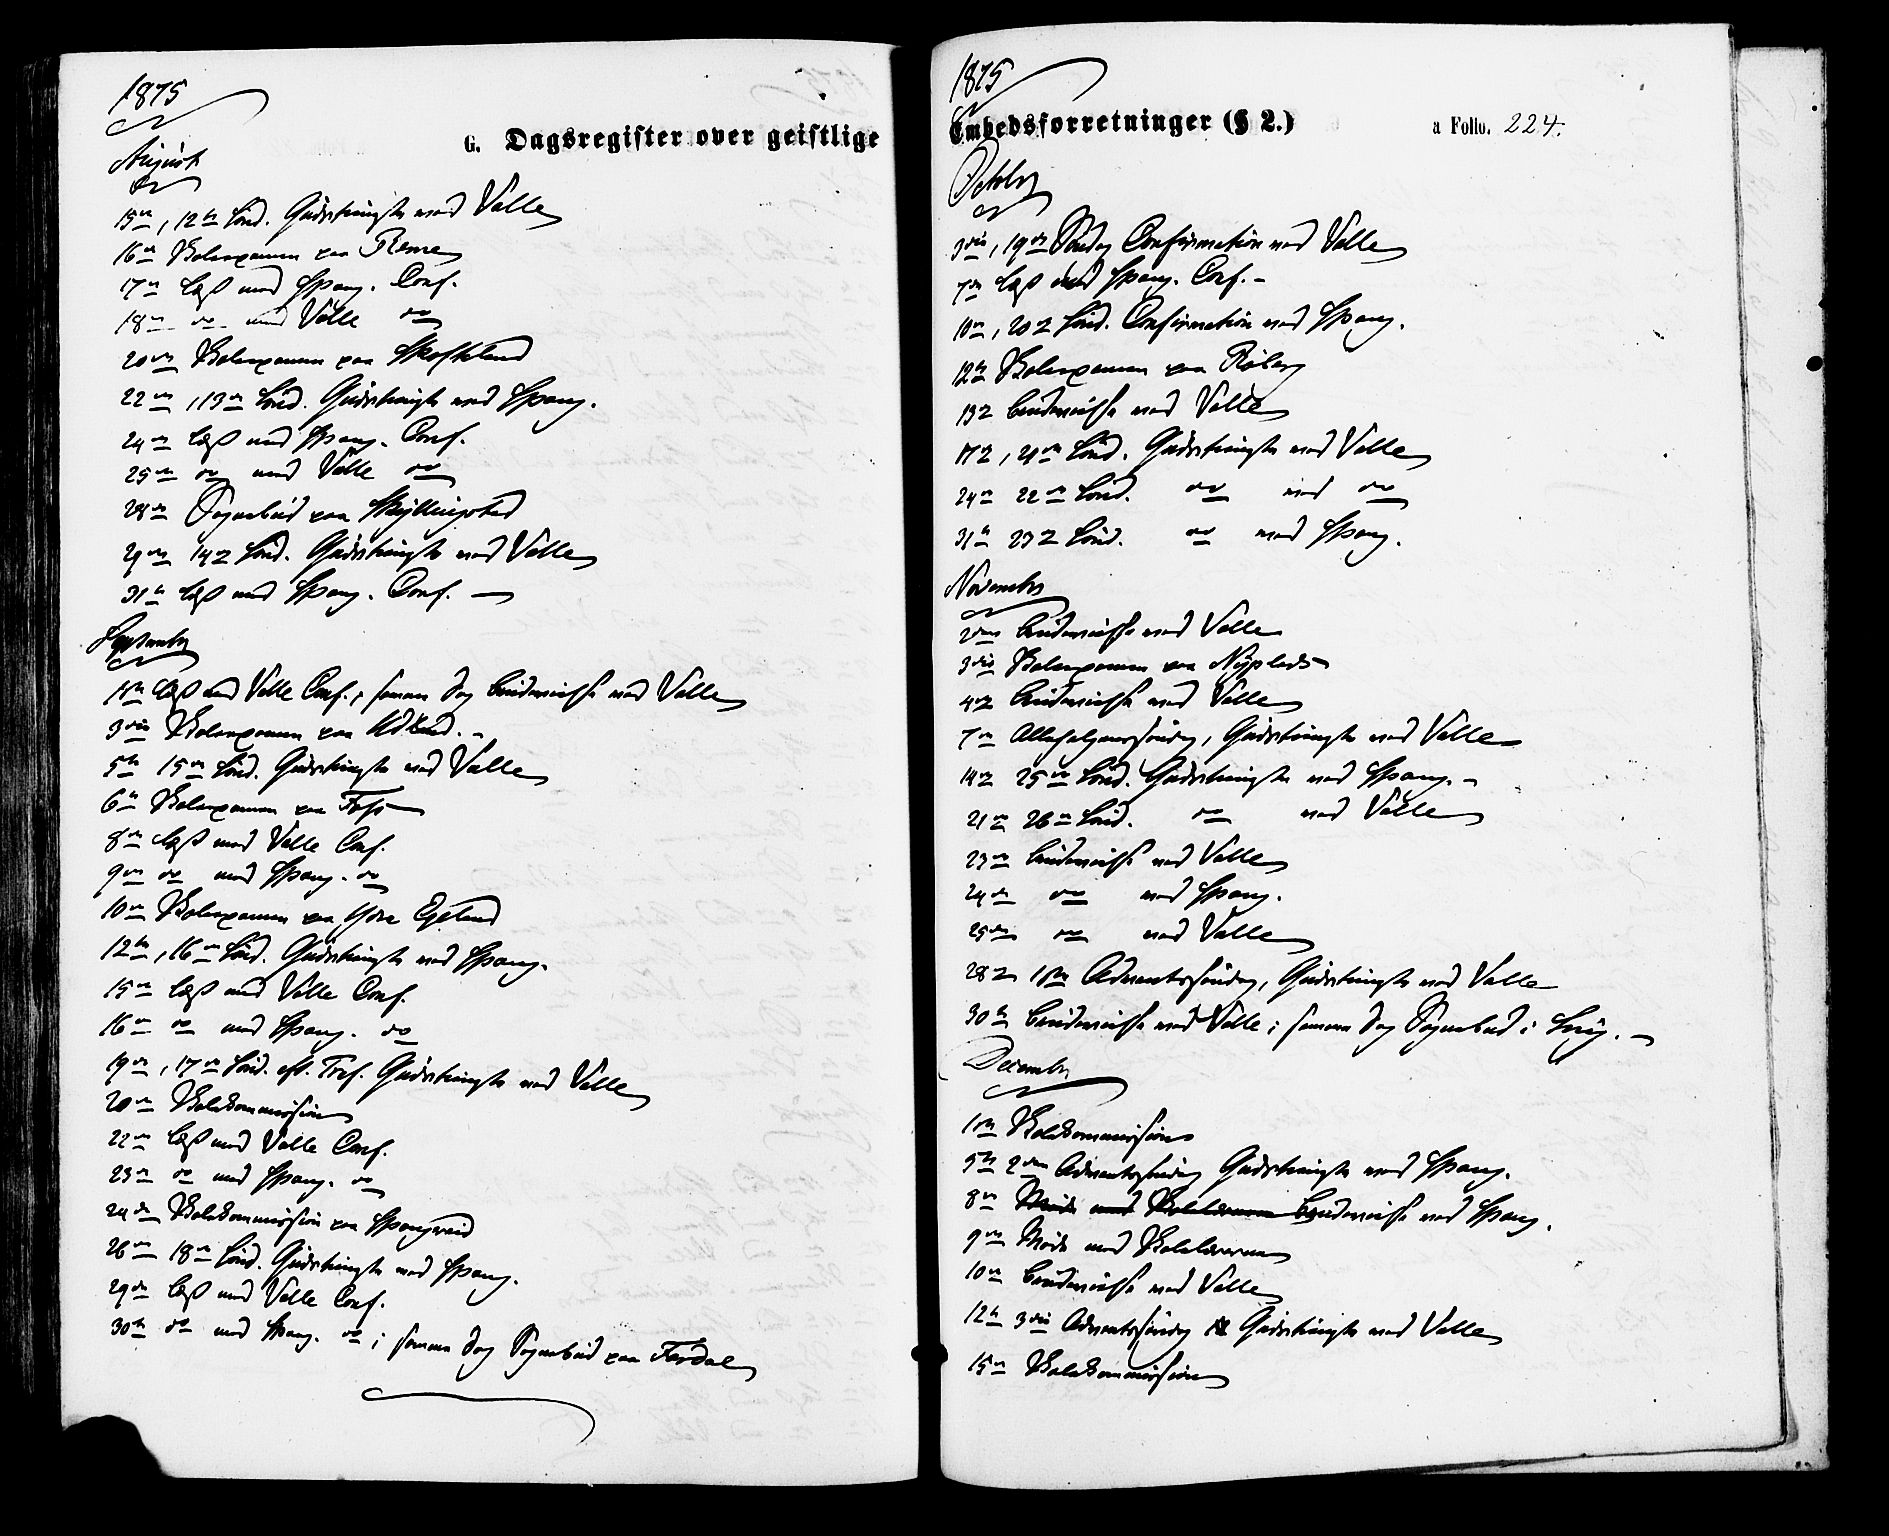 1875
G. Dagsregister over geistlige
August
15de, 12te Sönd. Gudstjeneste ved Valle
16de Skoleexamen paa Reme
17de læst med Spang. Conf.
18de do med Valle do
20de Skoleexamen paa Skofteland
22de, 13de Sönd. Gudstjeneste ved Spang.
24de læst med Spang. Conf.
25de do med Valle do
28de Sognebud paa
29de 14de Sönd. Gudstjeneste ved Valle
31te læst med Spang. Conf. —
September
1ste læst med Valle Conf.; samme Dag Brudevielse ved Valle
3die Skoleexamen paa
5te 15de Sönd. Gudstjeneste ved Valle
6te Skoleexamen paa Foss
8de læst med Valle Conf.
9de do med Spang. do
10de Skoleexamen paa Egeland
12te, 16de Sönd. Gudstjeneste ved Spang.
15de læst med Valle Conf.
16de do med Spang. do
19de, 17de Sönd. eft. Tref. Gudstjeneste ved Valle
20de Skolekommission
22de læst med Valle Conf.
23de do med Spang. do
24de Skolekommission paa Spangereid
26de 18de Sönd. Gudstjeneste ved Spang.
29de læst med Valle Conf.
30te do med Spang. do; samme Dag Sognebud paa Fardal
1875
Embedsforretninger (§ 2.)
a Folio. 224.
October
3die, 19de Søndag Confirmation ved Valle
7de læst med Spang. Conf. –
10de, 20de Sönd. Confirmation ved Spang.
12te Skoleexamen paa Röberg
13de Brudevielse ved Valle
17de, 21de Sönd. Gudstjeneste ved Valle
24de 22de Sönd. do ved do
31te 23de Sönd. do ved Spang.
November
2den Brudevielse ved Valle
3die Skoleexamen paa Nyplads
4de Brudevielse ved Valle
7de Allehelgenssöndag, Gudstjeneste ved Valle
14de 25de Sönd. Gudstjeneste ved Spang. –
21de 26de Sönd. do ved Valle
23de Brudevielse ved Valle
24de do ved Spang.
25de do ved Valle
28de 1ste Adventssöndag, Gudstjeneste ved Valle
30te Brudevielse ved Valle; samme Dag Sognebud i
December
1ste Skolekommission
5te 2den Adventssöndag Gudstjeneste ved Spang.
8de Möde med Skolelærerne Brudevielse ved Spang.
9de Möde med Skolelærerne
10de Brudevielse ved Valle
12te 3die Adventssöndag Gudstjeneste ved Valle
15de Skolekommission